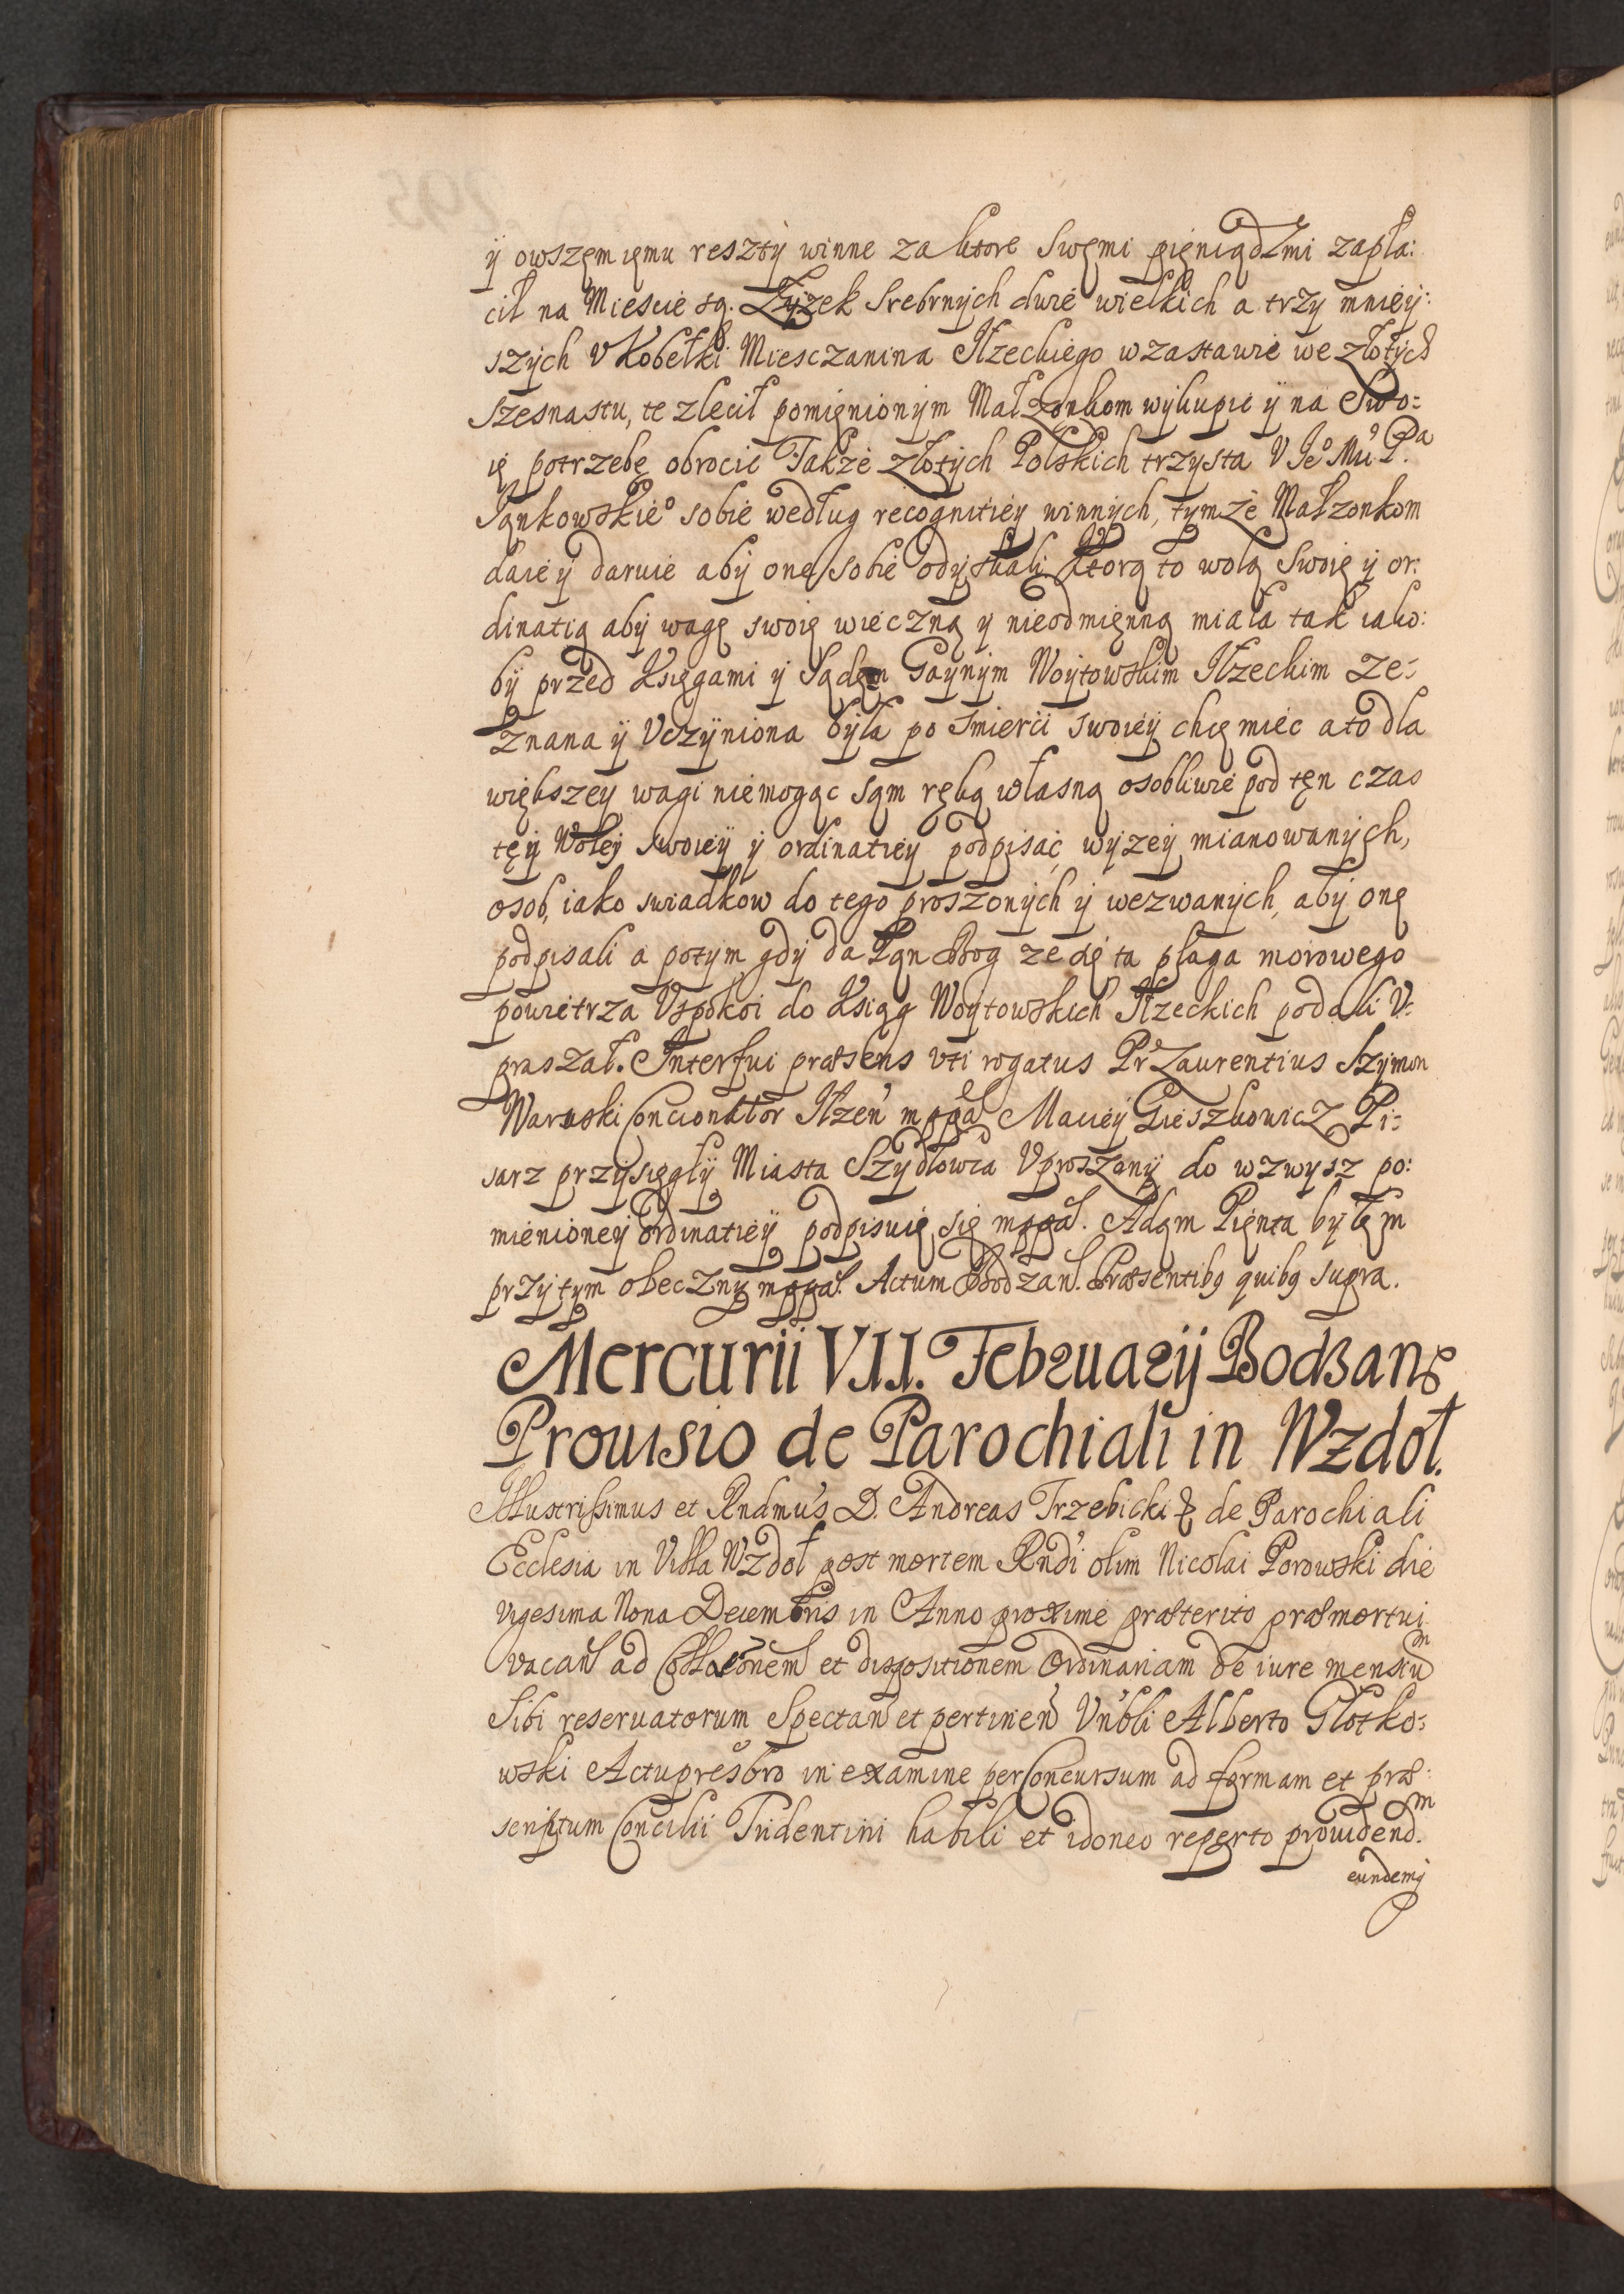 ÿ owszęm ięmu resztÿ winne za ktore Swęmi pięniądzmi zapła:
cił na Miescie są. Łyżek Srebrnÿch dwie wielkich a trzy mnieÿ:
szÿch V Kobełki Miesczanina Iłzeckiego w zastawie we złotÿch
szesnastu, te zlecił pomięnionÿm Małzonkom wÿkupic ÿ na Swo:
ię potrzebę obrocic Także złotÿch Polskich trzysta V Ie° Mu° P. Pa
Iąnkowskie° sobie według recognitieÿ winnÿch, tymże Małzonkom
daie ÿ daruie abÿ one sobie odÿskali. Ktorą to wolą Swoię ÿ or:
dinatią abÿ wagę swoię wieczną ÿ nieodmięnną miała tak iako:
bÿ przed Księgami ÿ Sądęm Gaÿnÿm Woÿtowskim Iłzeckim ze:
znana ÿ Vczÿniona bÿła po smierci swoieÿ chcę miec a to dla
większeÿ wagi niemogąc sąm ręką własną osobliwie pod tęn czas
tęÿ Woleÿ swoieÿ ÿ ordinatieÿ podpisać wÿzeÿ mianowanÿch,
osob, iako swiadkow do tego proszonÿch ÿ wezwanÿch, abÿ onę
podpisali a potÿm gdÿ da Pąn Bog ze się ta plaga morowego
powietrza Vspokoi do Ksiąg Woÿtowskich Iłzeckich podali V:
praszał. Interfui præsens vti rogatus Pr Laurentius Szymon
Waruski Concionator Iłzen mppa Macieÿ Gieszkowicz Pi:
sarz przÿsięgłÿ Miasta Szÿdłowca Vproszonÿ do wzwysz po:
mienioneÿ Ordinatieÿ podpisuię się mppa. Adąm Pięnta bÿłęm
przÿ tym obecznÿ mppa. Actum Bodzan. Præsentibq quibq supra.
Mercurii VII. Februarÿ Bodzan
Prouisio de Parochiali in Wzdoł.
Illustrissimus et Rndmus D. Andreas Trzebicki & de Parochiali
Ecclesia in Villa Wzdoł post mortem Rndi olim Nicolai Porowski die
vigesima Nona Decembris in Anno proxime præterito præmortui
vacan ad Collaonem et dispositionem Ordinariam de iure mensium
Sibi reseruatorum Spectan et pertinen Vnbli Alberto Glotko:
wski Actupresbro in examine per Concursum ad formam et præ:
scriptum Concilii Tridentini habili et idoneo reperto prouidendm.
eundemq